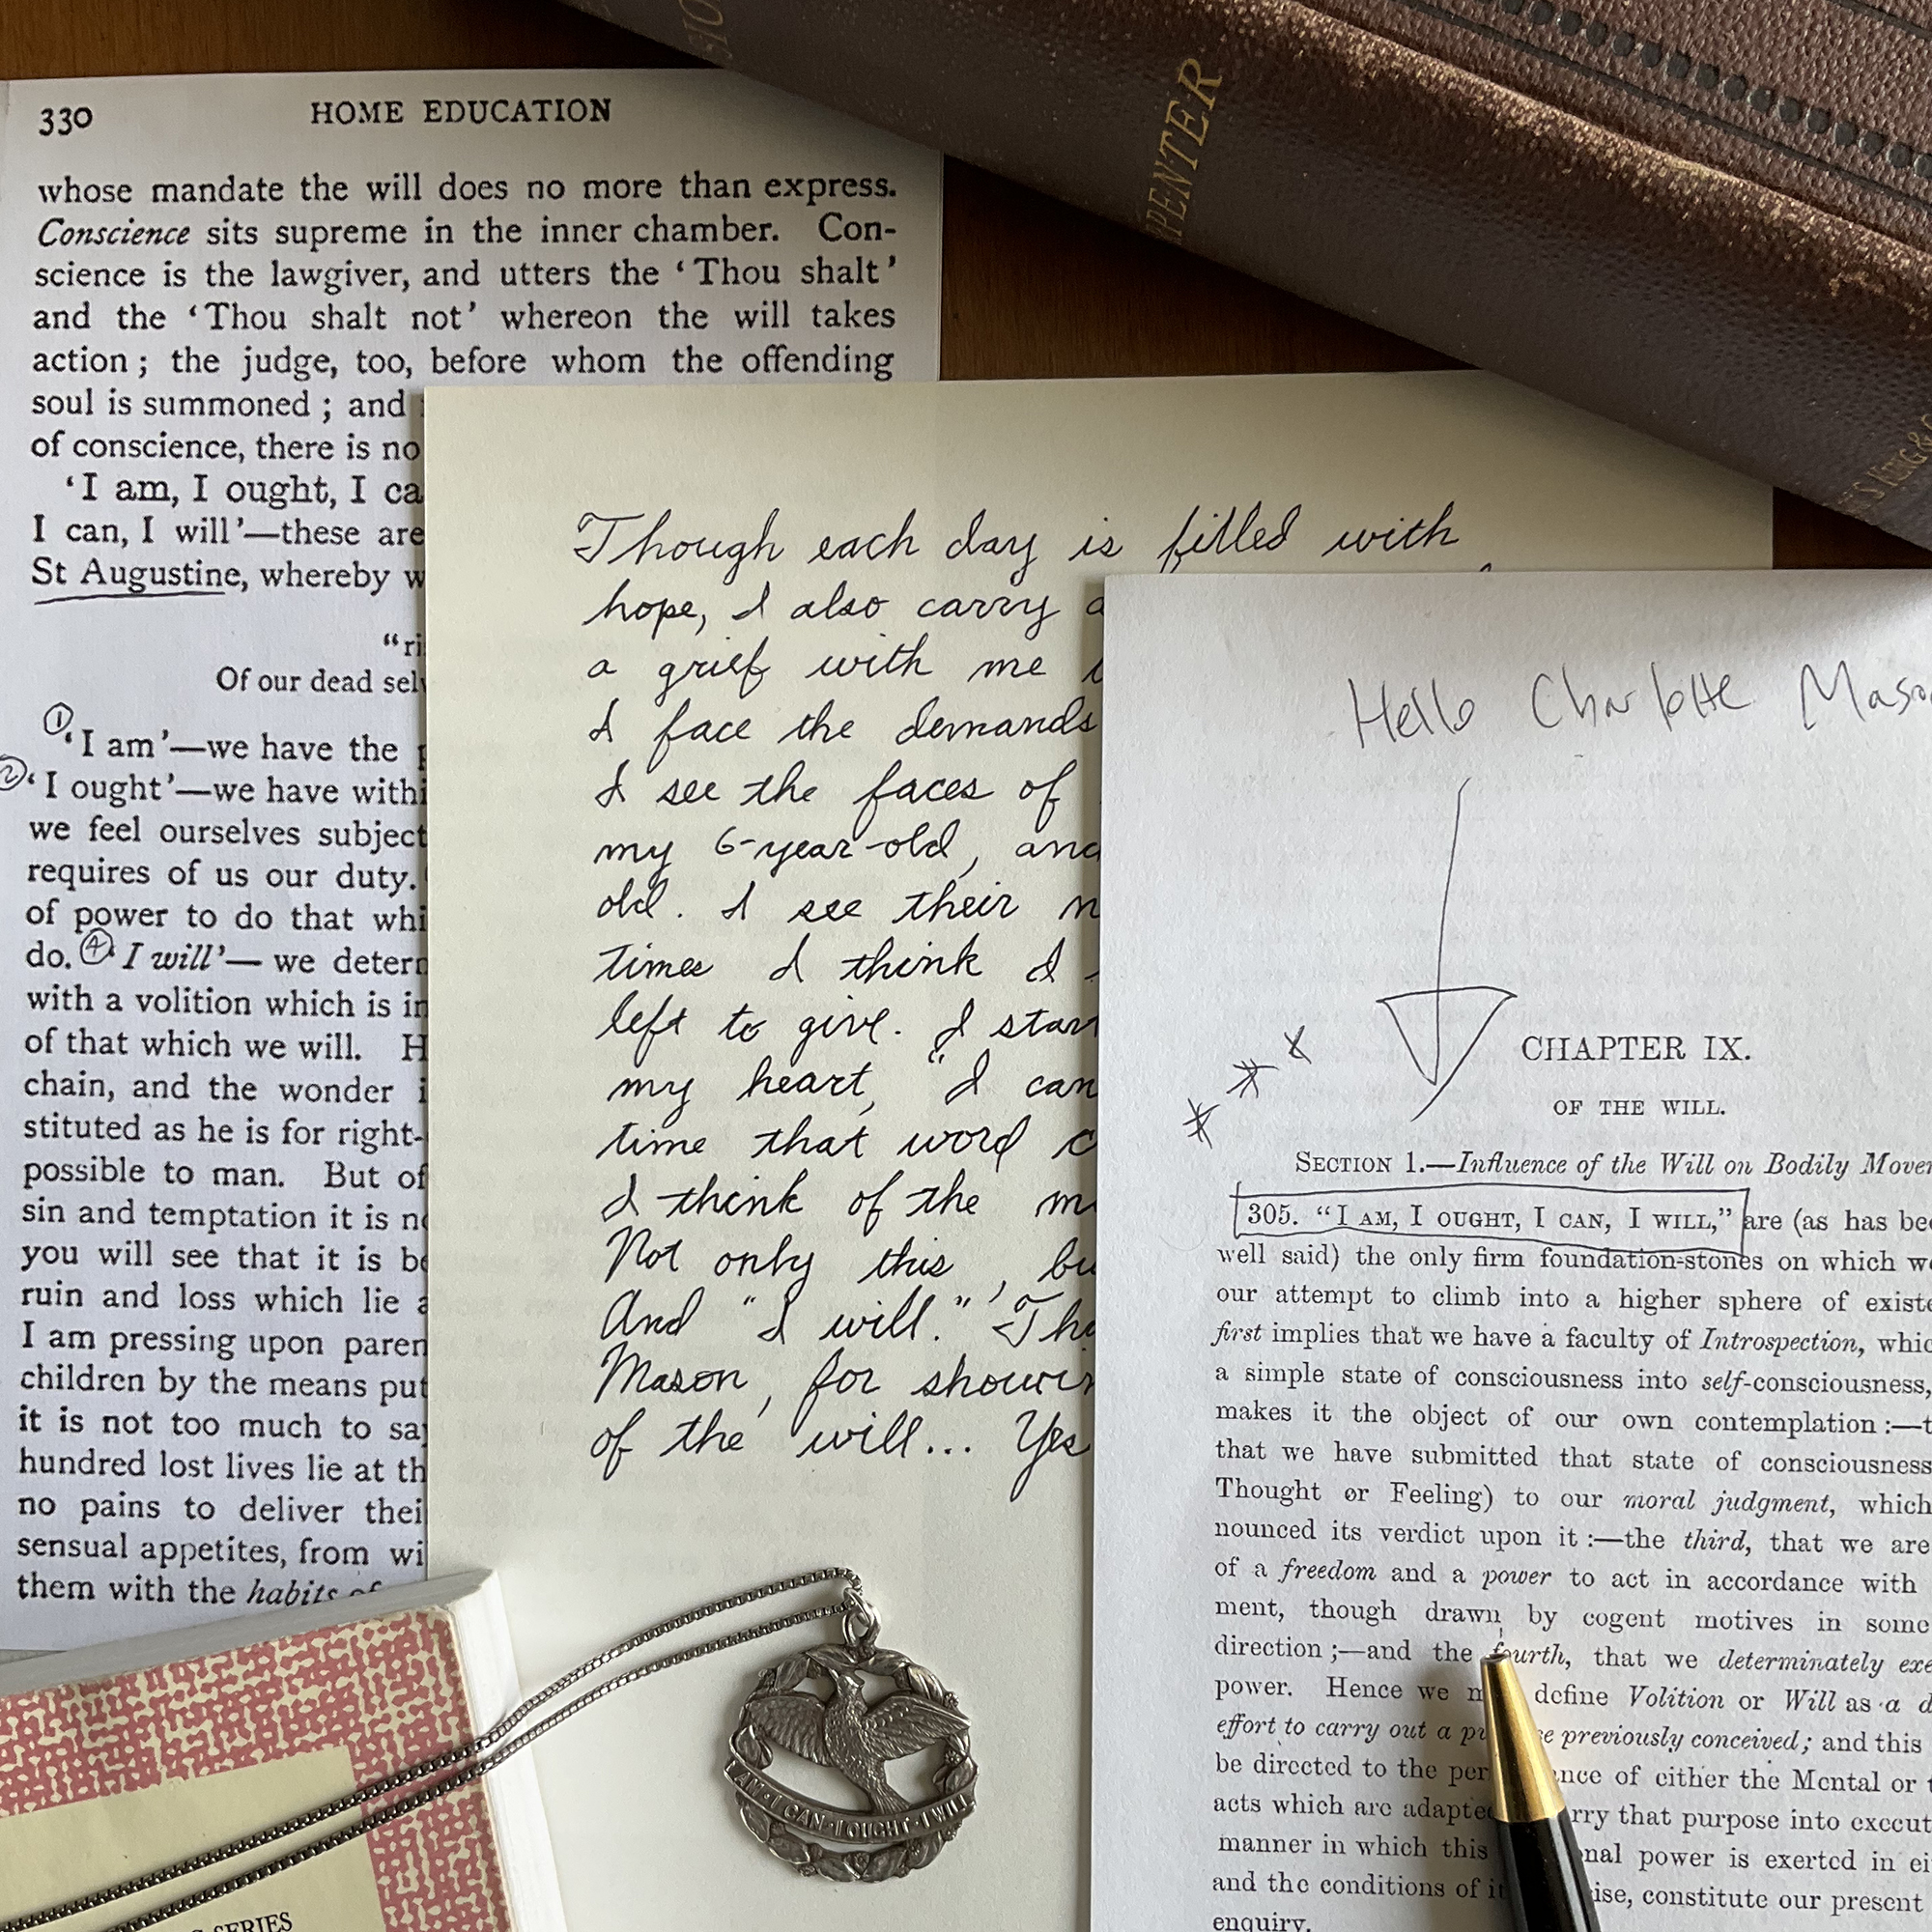 330 HOME EDUCATION
whose mandate the will does no more than express.
Conscience sits supreme in the inner chamber. Con-
science is the lawgiver, and utters the ‘Thou shalt’
and the ‘Thou shalt not’ whereon the will takes
action; the judge, too, before whom the offending
soul is summoned; and
of conscience, there is no
‘I am, I ought, I ca
I can, I will’—these are
St Augustine, whereby w
“ri
Of our dead sel
① ‘I am’—we have the
② ‘I ought’—we have withi
we feel ourselves subject
requires of us our duty.
of power to do that whi
do. ④ ‘I will’—we deter
with a volition which is in
of that which we will. H
chain, and the wonder i
stituted as he is for right-
possible to man. But of
sin and temptation it is n
you will see that it is be
ruin and loss which lie a
I am pressing upon paren
children by the means put
it is not too much to sa
hundred lost lives lie at th
no pains to deliver thei
sensual appetites, from wi
them with the habits of
SERIES
Though each day is filled with
hope, I also carry a
a grief with me
I face the demands
I see the faces of
my 6-year-old, and
old. I see their
times I think I
left to give. I start
my heart, “I can
time that word c
I think of the m
Not only this, bu
And “I will.” Tha
Mason, for showin
of the will... Yes
I AM·I CAN·I OUGHT·I WILL
RPENTER
Hello Charlotte Maso
CHAPTER IX.
OF THE WILL.
SECTION 1.—Influence of the Will on Bodily Move
305. “I AM, I OUGHT, I CAN, I WILL,” are (as has bee
well said) the only firm foundation-stones on which we
our attempt to climb into a higher sphere of existe
first implies that we have a faculty of Introspection, whic
a simple state of consciousness into self-consciousness,
makes it the object of our own contemplation:—t
that we have submitted that state of consciousness
Thought or Feeling) to our moral judgment, which
nounced its verdict upon it:—the third, that we are
of a freedom and a power to act in accordance with
ment, though drawn by cogent motives in some
direction;—and the fourth, that we determinately exe
power. Hence we m define Volition or Will as a d
effort to carry out a pu se previously conceived; and this
be directed to the per nce of either the Mental or
acts which are adapted rry that purpose into execut
manner in which this nal power is exerted in ei
and the conditions of it ise, constitute our present
enquiry.